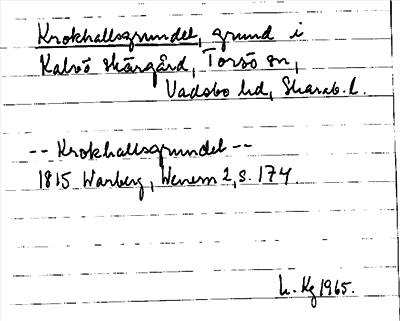 Krokhallsgrundet, grund i
Kalvö skärgård, Torsö sn,
Vadsbo hd, Skarab. l.
-- Krokhallsgrundet --
1815 Warberg, Wenern 2, s. 174
L. Kg 1965.